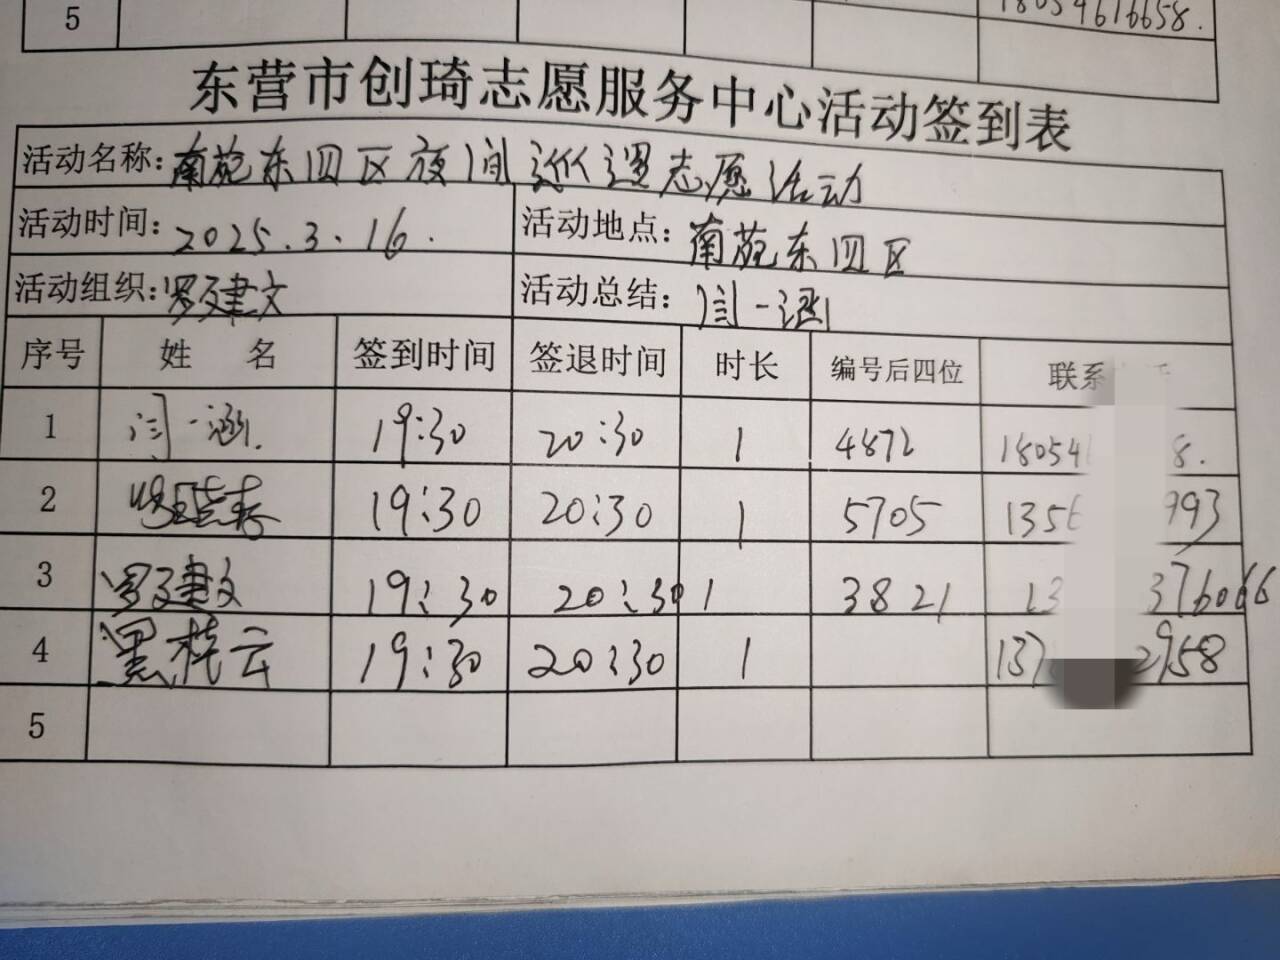 18054616658.
5
东营市创琦志愿服务中心活动签到表
活动名称:南苑东四区夜间巡逻志愿活动
活动时间:2025.3.16. 活动地点:南苑东四区
活动组织:罗建文 活动总结:闫一涵
序号 姓 名 签到时间 签退时间 时长 编号后四位 联系
1 闫一涵. 19:30 20:30 1 4872 18054 8.
2 19:30 20:30 1 5705 1356 993
3 罗建文 19:30 20:30 1 3821 13 376066
4 黑桂云 19:30 20:30 1 137 2958
5